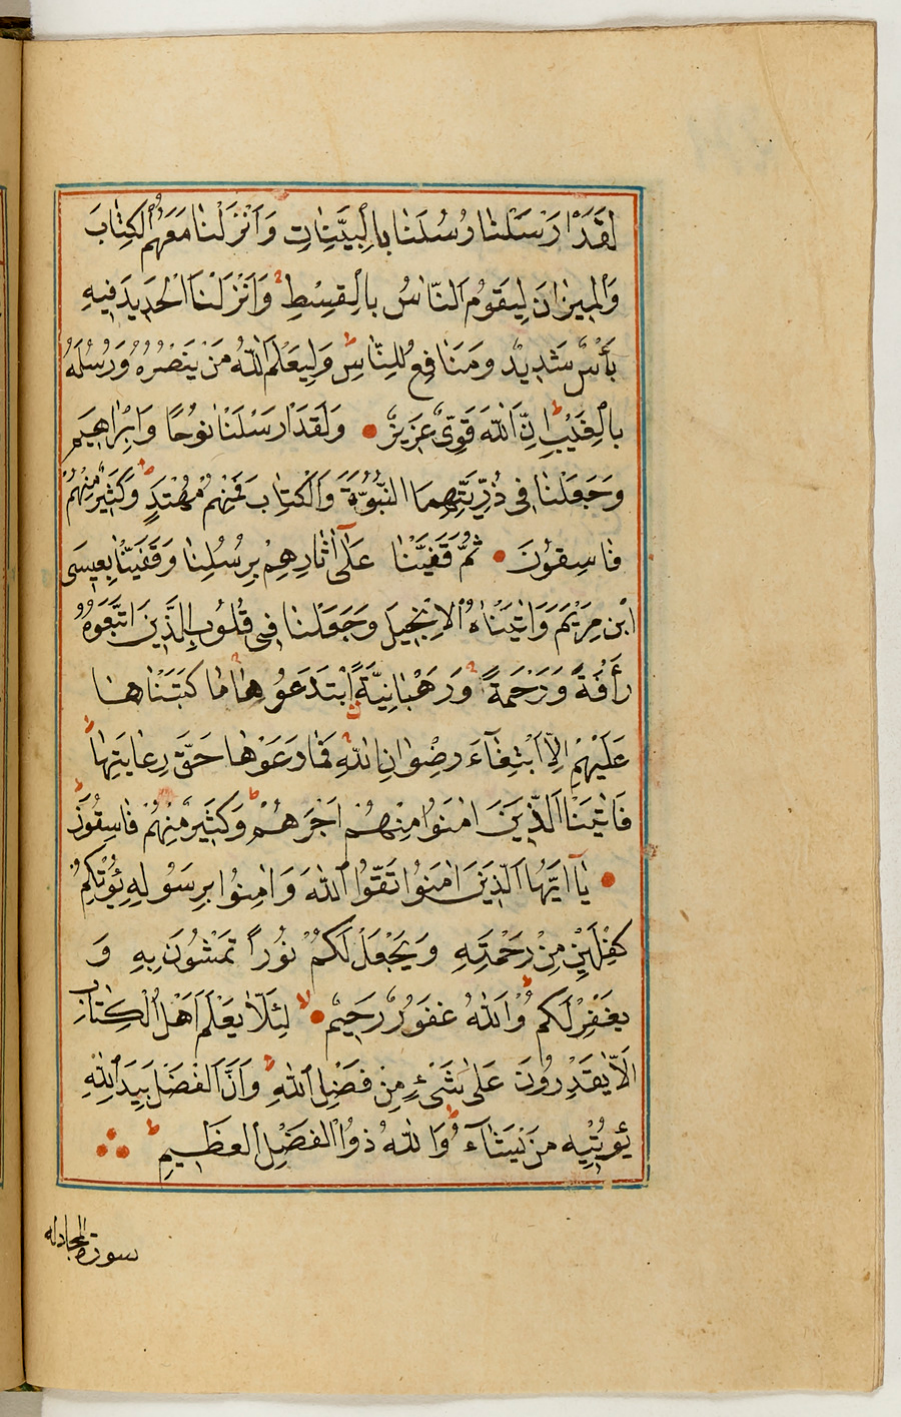 لَقَدْ اَرْسَلْنٰا رُسُلَنٰا بِالْبَيِّنٰاتِ وَاَنْزَلْنٰا مَعَهُمُ الْكِتٰابَ
وَالْمِيزٰانَ لِيَقُومَ النّٰاسُ بِالْقِسْطِ وَاَنْزَلْنَا الْحَدِيدَ فِيهِ
بَأْسٌ شَدِيدٌ وَمَنٰافِعُ لِلنّٰاسِ وَلِيَعْلَمَ اللّٰهُ مَنْ يَنْصُرُهُ وَرُسُلَهُ
بِالْغَيْبِ اِنَّ اللّٰهَ قَوِىٌّ عَزِيزٌ وَلَقَدْ اَرْسَلْنٰا نُوحًا وَاِبْرٰاهِيمَ
وَجَعَلْنٰا فِى ذُرِّيَّتِهِمَا النُّبُوَّةَ وَالْكِتٰابَ فَمِنْهُمْ مُهْتَدٍ وَكَثِيرٌ مِنْهُمْ
فٰاسِقُونَ ثُمَّ قَفَّيْنٰا عَلٰى اٰثٰارِهِمْ بِرُسُلِنٰا وَقَفَّيْنٰا بِعِيسَى
ابْنِ مَرْيَمَ وَاٰتَيْنٰاهُ الْاِنْجِيلَ وَجَعَلْنٰا فِى قُلُوبِ الَّذِينَ اتَّبَعُوهُ
رَأْفَةً وَرَحْمَةً وَرَهْبٰانِيَّةً ابْتَدَعُوهٰا مٰا كَتَبْنٰاهٰا
عَلَيْهِمْ اِلَّا ابْتِغٰآءَ رِضْوٰانِ اللّٰهِ فَمٰا رَعَوْهٰا حَقَّ رِعٰايَتِهٰا
فَاٰتَيْنَا الَّذِينَ اٰمَنُوا مِنْهُمْ اَجْرَهُمْ وَكَثِيرٌ مِنْهُمْ فٰاسِقُونَ
يٰا اَيُّهَا الَّذِينَ اٰمَنُوا اتَّقُوا اللّٰهَ وَاٰمِنُوا بِرَسُولِهِ يُؤْتِكُمْ
كِفْلَيْنِ مِنْ رَحْمَتِهِ وَيَجْعَلْ لَكُمْ نُورًا تَمْشُونَ بِهِ وَ
يَغْفِرْ لَكُمْ وَاللّٰهُ غَفُورٌ رَحِيمٌ لِئَلَّا يَعْلَمَ اَهْلُ الْكِتٰابِ
اَلَّا يَقْدِرُونَ عَلٰى شَىْءٍ مِنْ فَضْلِ اللّٰهِ وَاَنَّ الْفَضْلَ بِيَدِ اللّٰهِ
يُؤْتِيهِ مَنْ يَشٰآءُ وَاللّٰهُ ذُو الْفَضْلِ الْعَظِيمِ
سورة المجادله